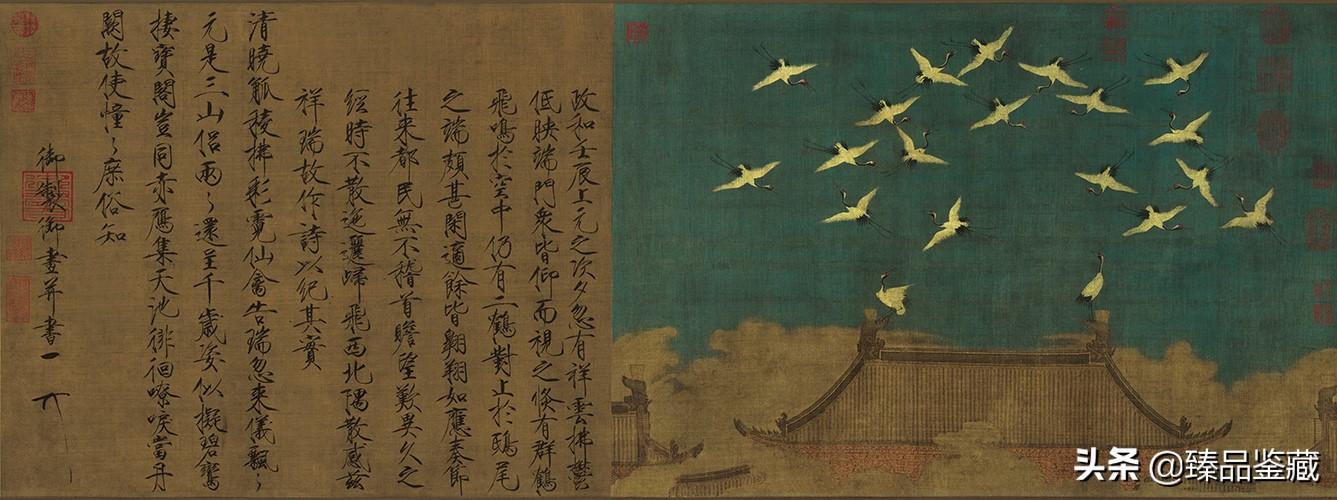 政和壬辰上元之次夕忽有祥雲拂鬱
低映端門衆皆仰而視之倏有群鶴
飛鳴於空中仍有二鶴對止於鴟尾
之端頗甚閑適餘皆翱翔如應奏節
往來都民無不稽首瞻望歎異久之
經時不散迤邐歸飛西北隅散感茲
祥瑞故作詩以紀其實
清曉觚稜拂彩霓仙禽告瑞忽來儀飄〻
元是三山侶兩〻還呈千歲姿似擬碧鸞
棲寶閣豈同赤鴈集天池徘徊嘹唳當丹
闕故使憧〻庶俗知
御製御畫并書
头条 @臻品鉴藏